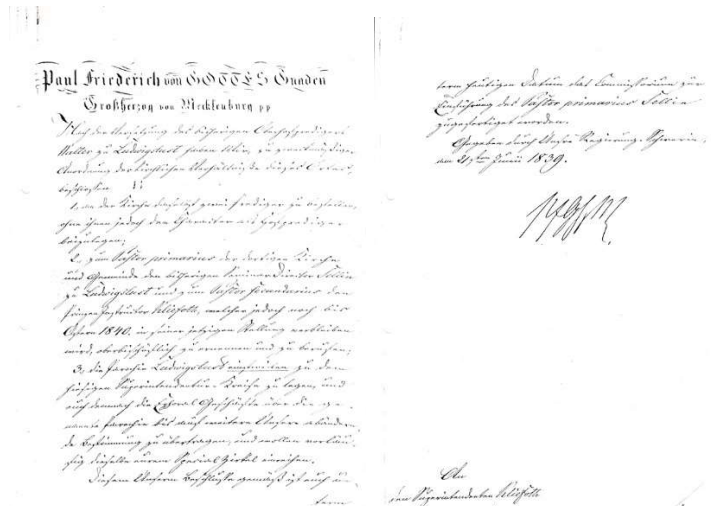 Paul Friederich von GOTTES Gnaden
Großherzog von Mecklenburg pp
Nach der Versetzung des bisherigen Oberhofpredigers
Walter zu Ludwigslust haben Wir, zu
Anordnung der kirchlichen Verhältnisse dieses Ortes,
beschlossen
1, an der Kirche daselbst zwei Prediger zu bestellen,
ohne ihnen jedoch den Charakter als Hofprediger
beizulegen;
2, zum Pastor primarius der dortigen Kirche
und Gemeinde den bisherigen Seminar Director
zu Ludwigslust und zum Pastor secundarius den
Prinzen Instructor Kliefoth, welcher jedoch noch bis
Ostern 1840. in seiner jetzigen Stellung verbleiben
wird, oberbischöflich zu ernennen und zu berufen;
3, die Parochie Ludwigslust einstweilen zu dem
hiesigen Superintendentur-Kreise zu legen, und
auch demnach die Ephoral Geschäfte über die ge-
nannte Parochie bis auf weitere Unsere abändern-
de Bestimmung zu übertragen, und wollen vorläu-
fig dieselbe eurem Special Zirkel einreihen.
Diesem Unserm Beschlusse gemäß ist euch un-
term
term heutigen Datum das Commissorium zur
Einführung des Pastor primarius
zugefertigt worden.
Gegeben durch Unsre Regierung. Schwerin,
am 21sten Junii 1839.
An
den Superintendenten Kliefoth